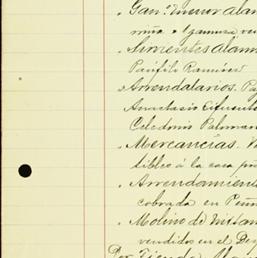 " Gan.º menor Alam
" Simientes Alam
Panfilo Ramirez
" Arrendatarios. Pa
Anastasio Cifuent
Celedonio Palomar
" Mercancías. V
tibles á la casa p
" Arrendamient
cobrada en Peñ
" Molino de
vendidos en el De
Por Tienda Alam